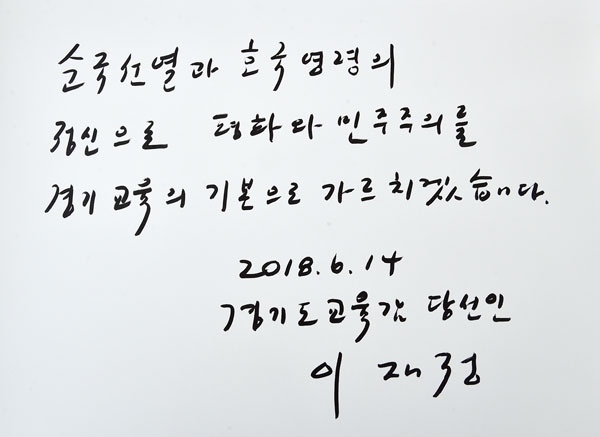 순국선열과 호국영령의
정신으로 평화와 민주주의를
경기교육의 기본으로 가르치겠습니다.
2018.6.14
경기도교육감 당선인
이재정